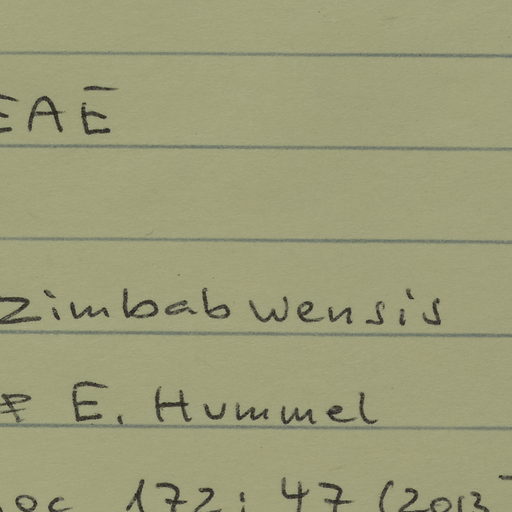 EAE
zimbabwensis
& E. Hummel
oc 172: 47 (2013